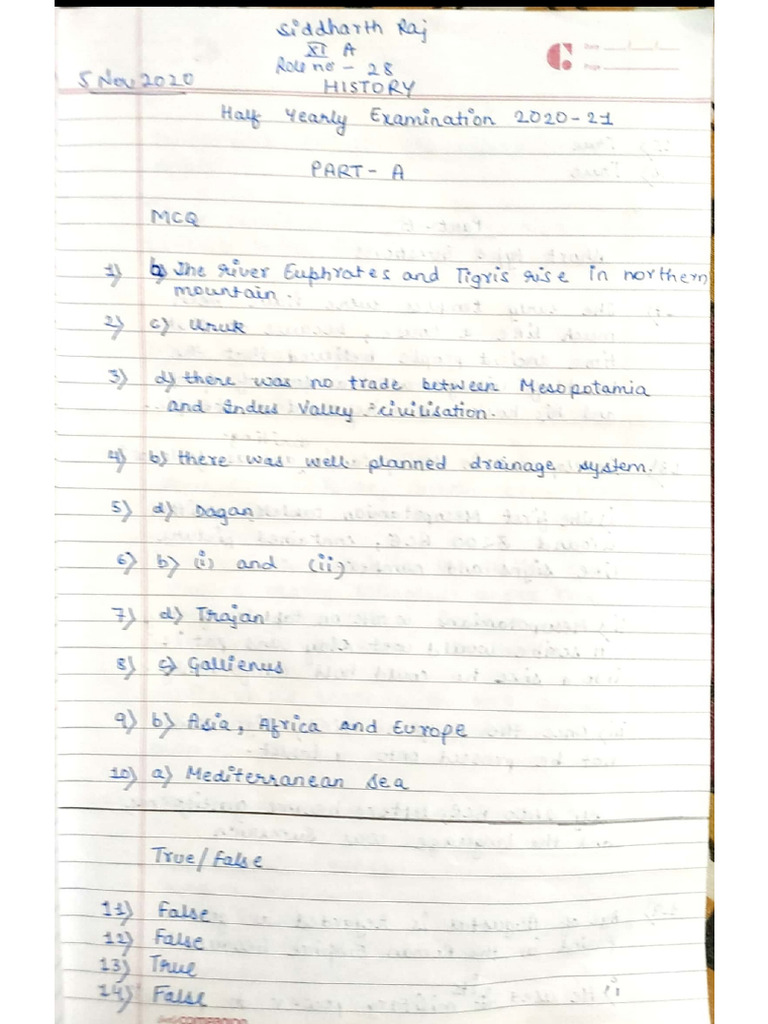 Siddharth Raj
XI A
Roll no - 28
Date
Page
5 Nov 2020
HISTORY
Half Yearly Examination 2020-21
PART - A
MCQ
1) b) The river Euphrates and Tigris rise in northern
mountain.
2) c) Uruk
3) d) there was no trade between Mesopotamia
and Indus Valley civilisation.
4) b) there was well planned drainage system.
5) d) Dagan
6) b) (i) and (ii)
7) d) Trajan
8) c) Gallienus
9) b) Asia, Africa and Europe
10) a) Mediterranean Sea
True/False
11) False
12) False
13) True
14) False